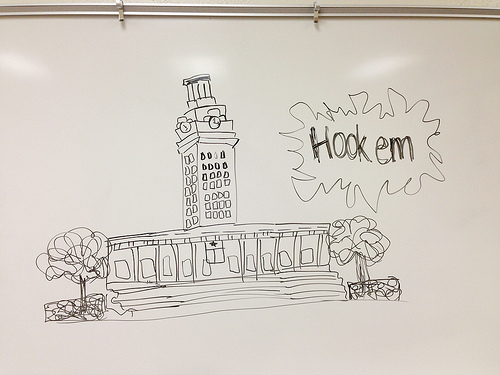 Hook em